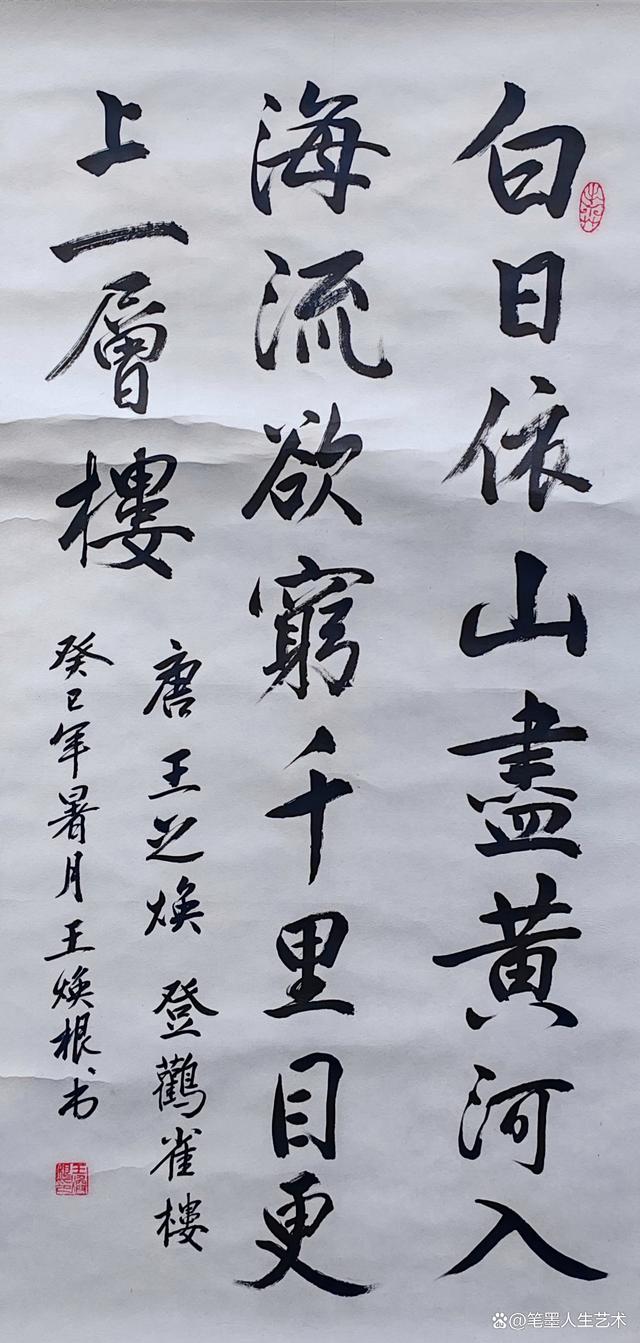 白日依山盡黄河入
海流欲窮千里目更
上一層樓
唐王之焕 登鸛雀樓
癸巳年暑月王焕根书
@笔墨人生艺术